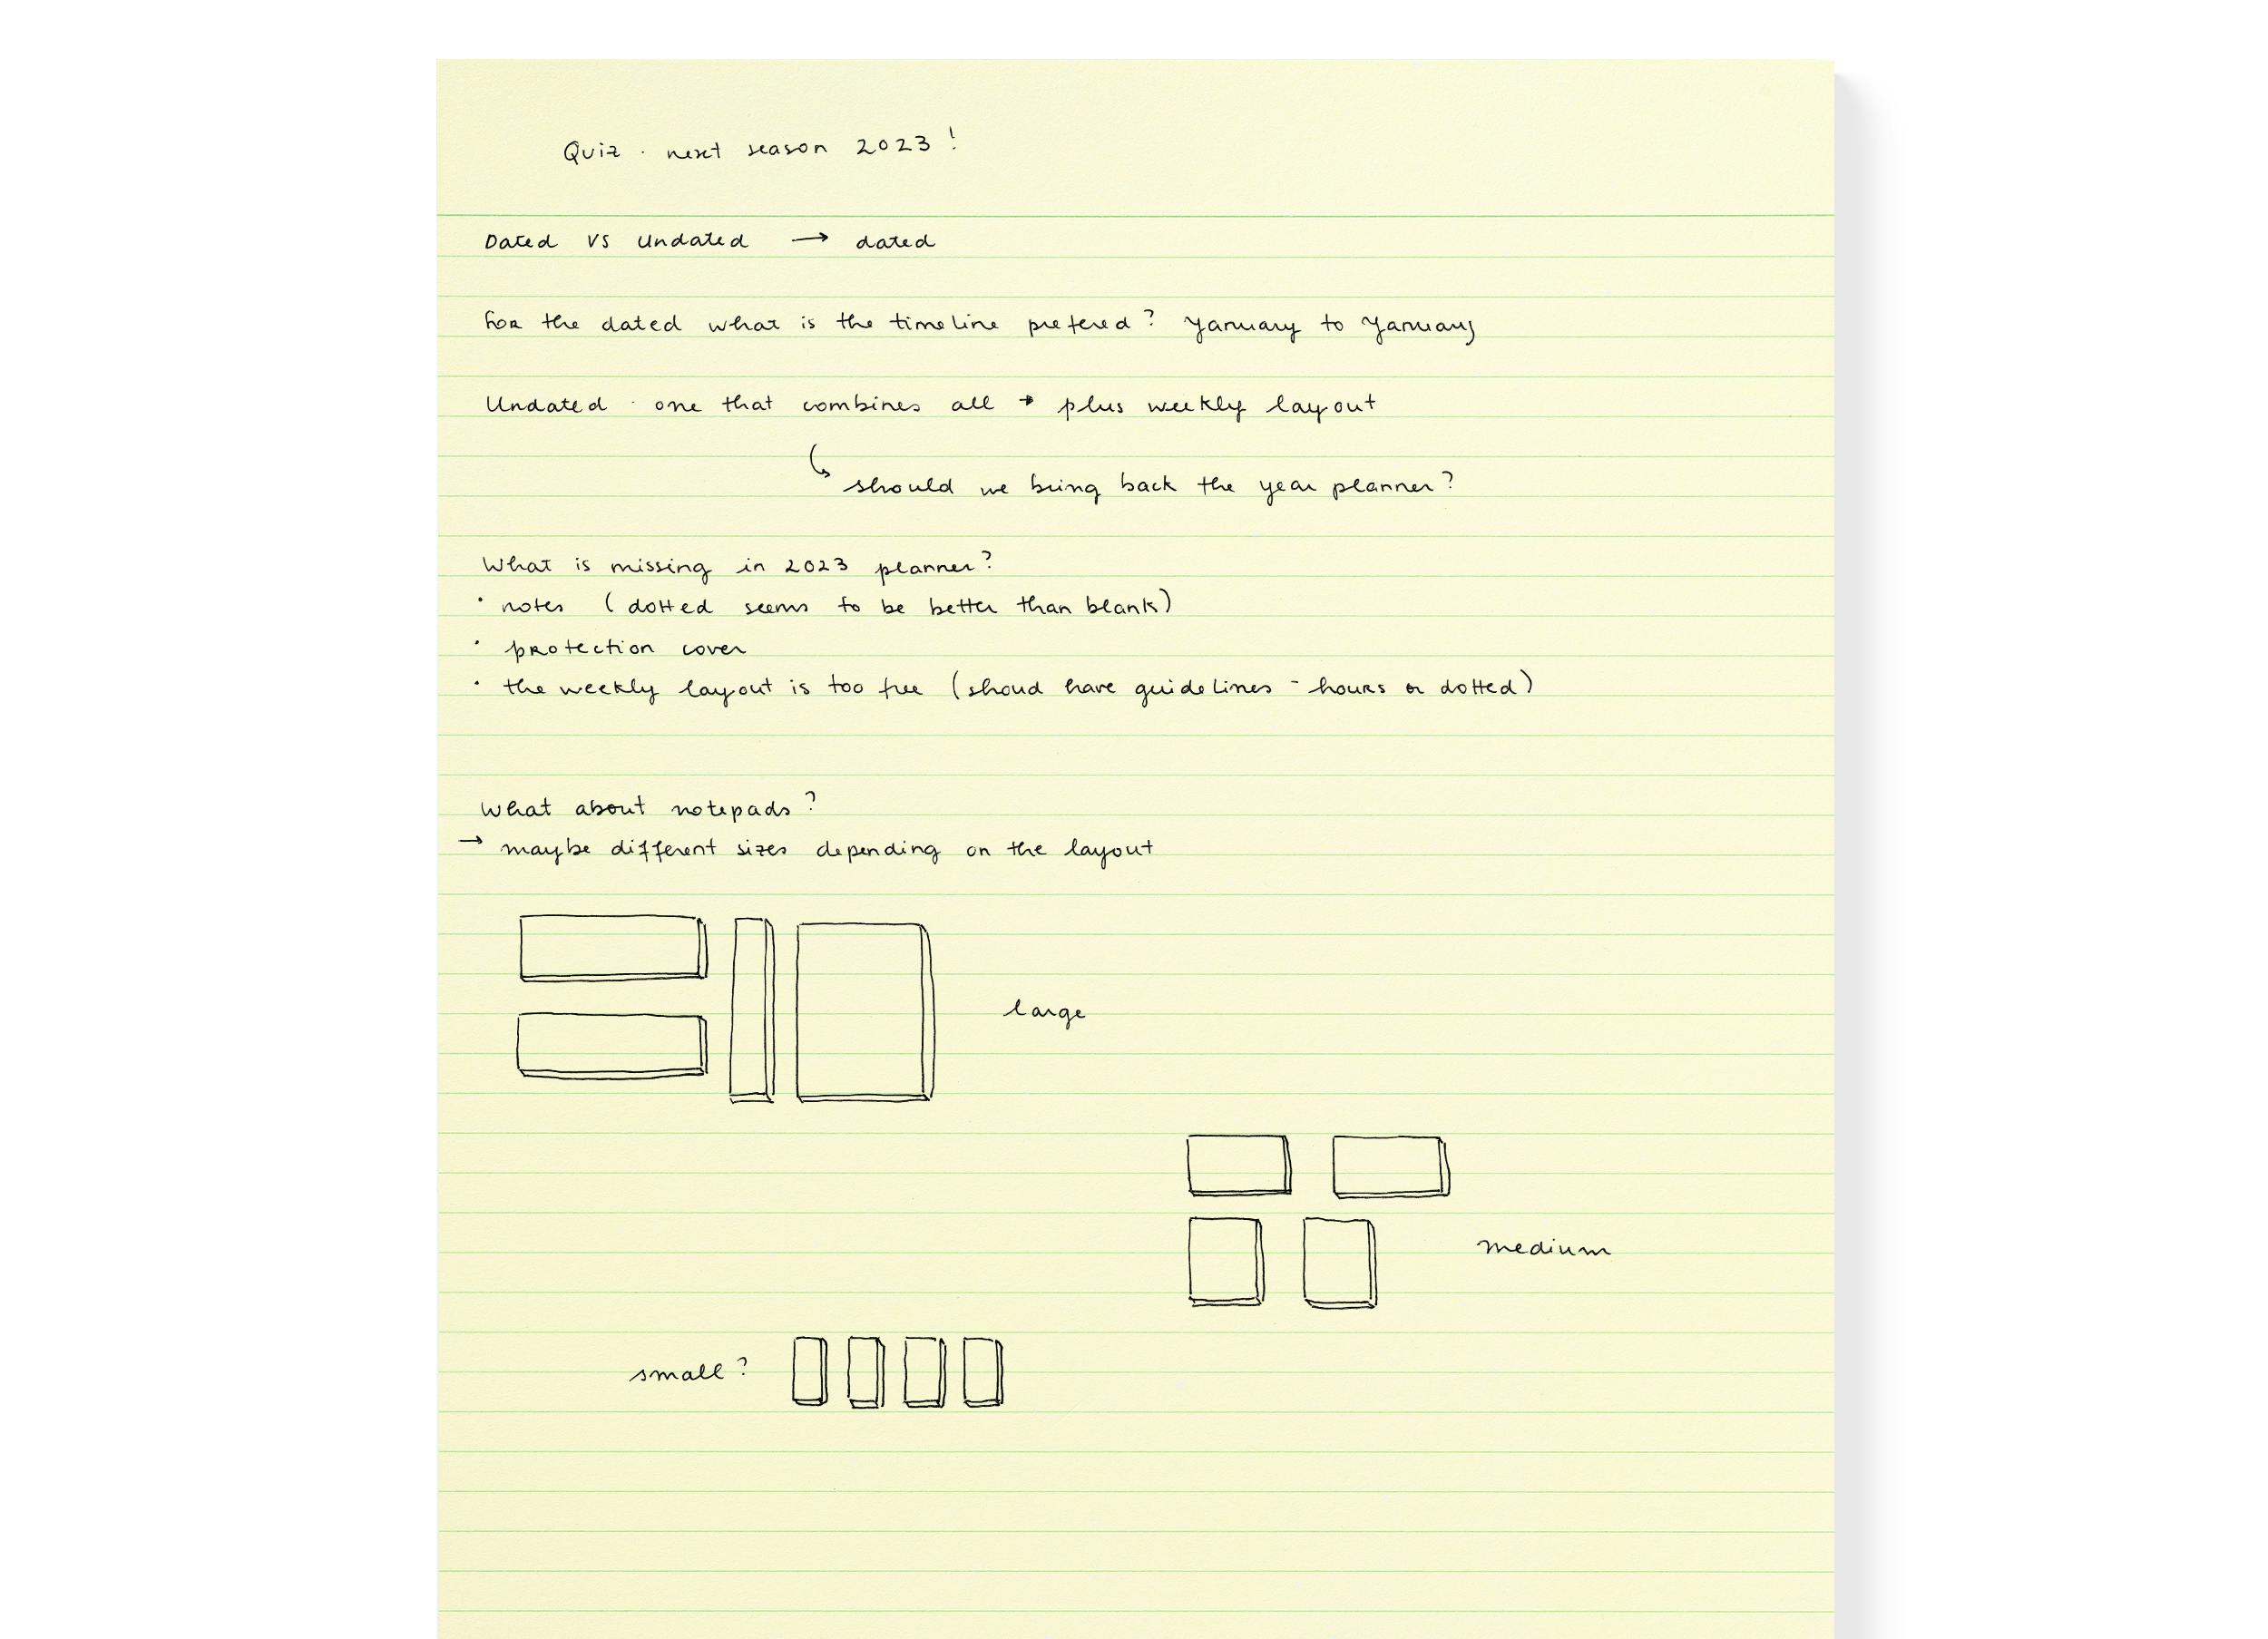 Quiz · next season 2023!
Dated VS Undated → dated
For the dated what is the timeline prefered? Yanuary to Yanuary
Undated · one that combines all → plus weekly layout
↳ should we bring back the year planner?
What is missing in 2023 planner?
· notes (dotted seems to be better than blank)
· protection cover
· the weekly layout is too free (shoud have guidelines - hours or dotted)
What about notepads?
→ maybe different sizes depending on the layout
large
medium
small?